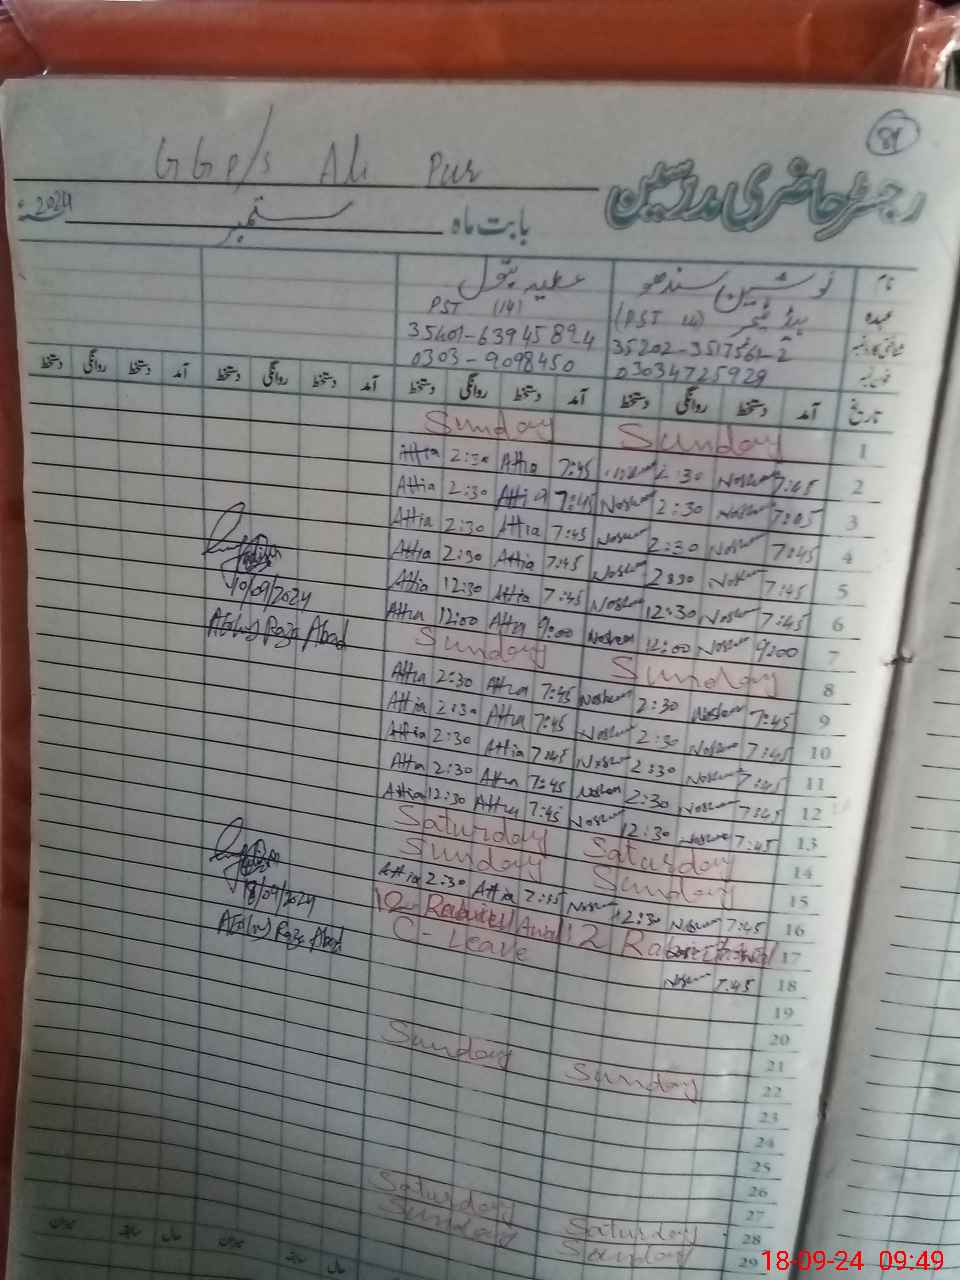 84
رجسٹر حاضری مدرسین
G G P/S Ali Pur
بابت ماہ ستمبر 2024
نام نوشین سندھو عطیہ بتول
عہدہ ہیڈ ٹیچر (PST 14) PST (14)
شناختی کارڈ نمبر 35202-3517561-2 35401-6394589-4
فون نمبر 03034725928 0303-9098450
تاریخ آمد دستخط روانگی دستخط آمد دستخط روانگی دستخط آمد دستخط روانگی دستخط آمد دستخط روانگی دستخط
1 Sunday Sunday
2 7:45 Noshen 2:30 7:45 Attia 2:30 Attia
3 Noshen 2:30 Noshen 7:45 Attia 2:30 Attia
4 7:45 Noshen 2:30 Noshen 7:45 Attia 2:30 Attia
5 7:45 Noshen 2:30 Noshen 7:45 Attia 2:30 Attia
6 7:45 Noshen 12:30 Noshen 7:45 Attia 12:30 Attia
7 9:00 Noshen 12:00 Noshen 9:00 Attia 12:00 Attia
10/09/2024
8 Sunday Sunday
9 7:45 Noshen 2:30 Noshen 7:45 Attia 2:30 Attia
10 7:45 Noshen 2:30 Noshen 7:45 Attia 2:30 Attia
11 7:45 Noshen 2:30 Noshen 7:45 Attia 2:30 Attia
12 7:45 Noshen 2:30 Noshen 7:45 Attia 2:30 Attia
13 7:45 Noshen 12:30 Noshen 7:45 Attia 12:30 Attia
14 Saturday Saturday
15 Sunday Sunday
16 7:45 Noshen 2:30 Noshen Attia 2:30 Attia
17 12 12
18 7:45 Noshen C-Leave
18/09/2024
19
20
21
22 Sunday Sunday
23
24
25
26
27
28 Saturday Saturday
29 Sunday Sunday
18-09-24 09:49